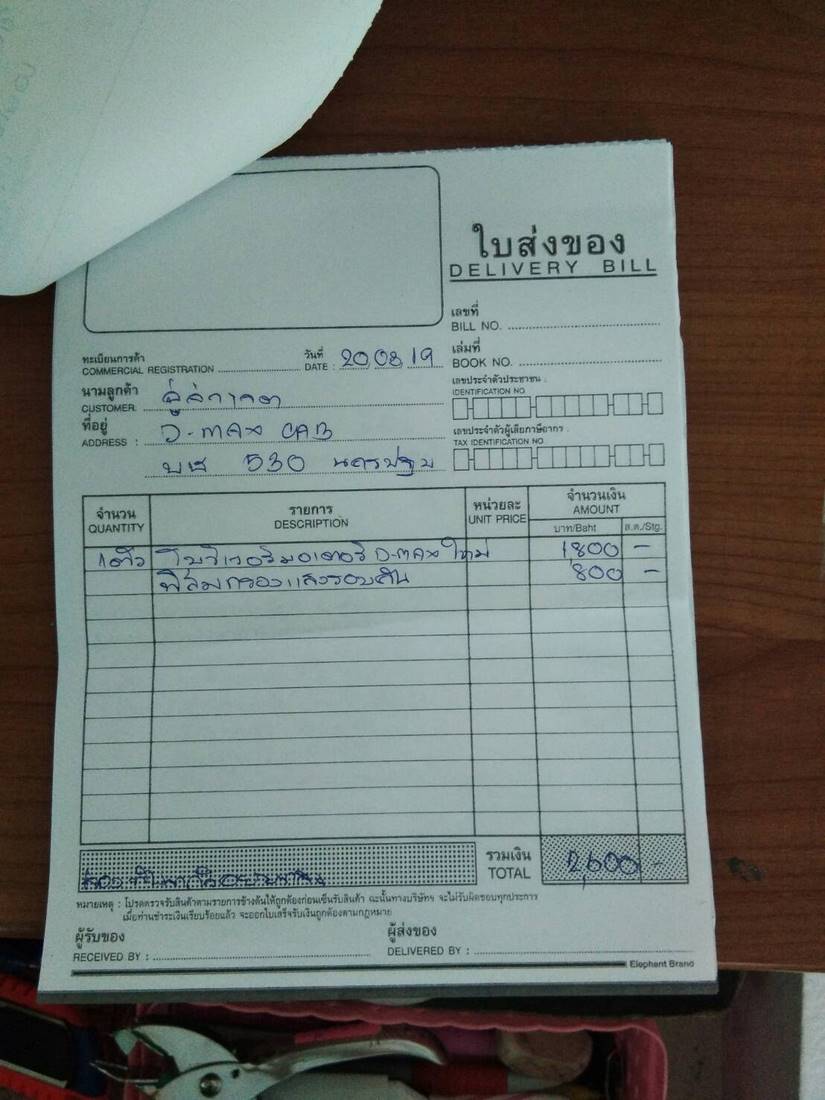 ใบส่งของ
DELIVERY BILL
เลขที่
BILL NO.
ทะเบียนการค้า
COMMERCIAL REGISTRATION
วันที่
DATE : 20 08 19
เล่มที่
BOOK NO.
นามลูกค้า
CUSTOMER.
เลขประจำตัวประชาชน :
IDENTIFICATION NO
ที่อยู่
ADDRESS : D-MAX CAB
เลขประจำตัวผู้เสียภาษีอากร :
TAX IDENTIFICATION NO
530 นครปฐม
จำนวน
QUANTITY
รายการ
DESCRIPTION
หน่วยละ
UNIT PRICE
จำนวนเงิน
AMOUNT
บาท/Baht
ส.ต./Stg.
1 ตัว โบเวอร์มอเตอร์ D-MAX ใหม่ 1,800 -
ฟิล์มกรองแสงรอบคัน 800 -
รวมเงิน
TOTAL 2,600 -
หมายเหตุ : โปรดตรวจรับสินค้าตามรายการข้างต้นให้ถูกต้องก่อนเซ็นรับสินค้า ฉะนั้นทางบริษัทฯ จะไม่รับผิดชอบทุกประการ
เมื่อท่านชำระเงินเรียบร้อยแล้ว จะออกใบเสร็จรับเงินถูกต้องตามกฎหมาย
ผู้รับของ
RECEIVED BY :
ผู้ส่งของ
DELIVERED BY :
Elephant Brand